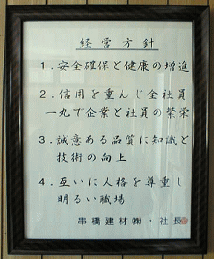 経営方針
1.安全確保と健康の増進
2.信用を重んじ全社員
一丸で企業と社員の繁栄
3.誠意ある品質に知識と
技術の向上
4.互いに人格を尊重し
明るい職場
串橋建材㈱・社長